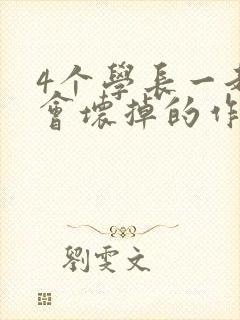 4个學長一
會壞掉的作
劉雯文